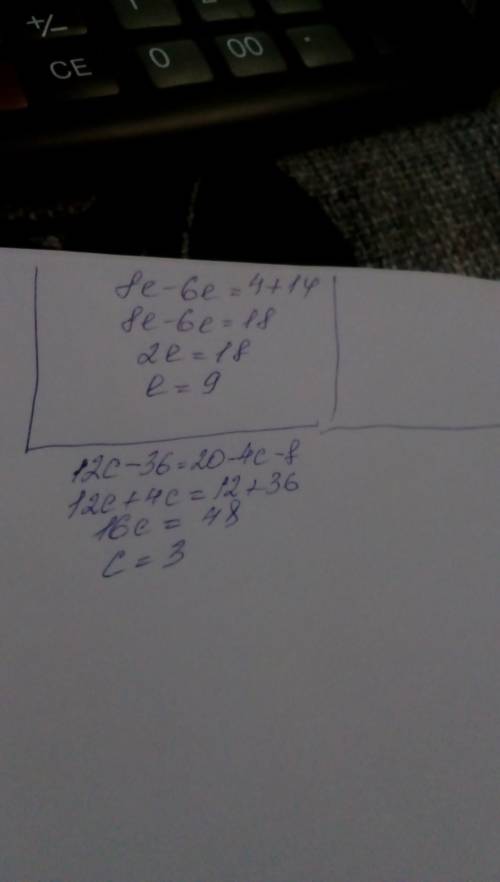 +/-
1
CE
0
00
.
8e-6e=4+14
8e-6e=18
2e=18
e=9
12c-36=20-4c-8
12c+4c=12+36
16c=48
c=3